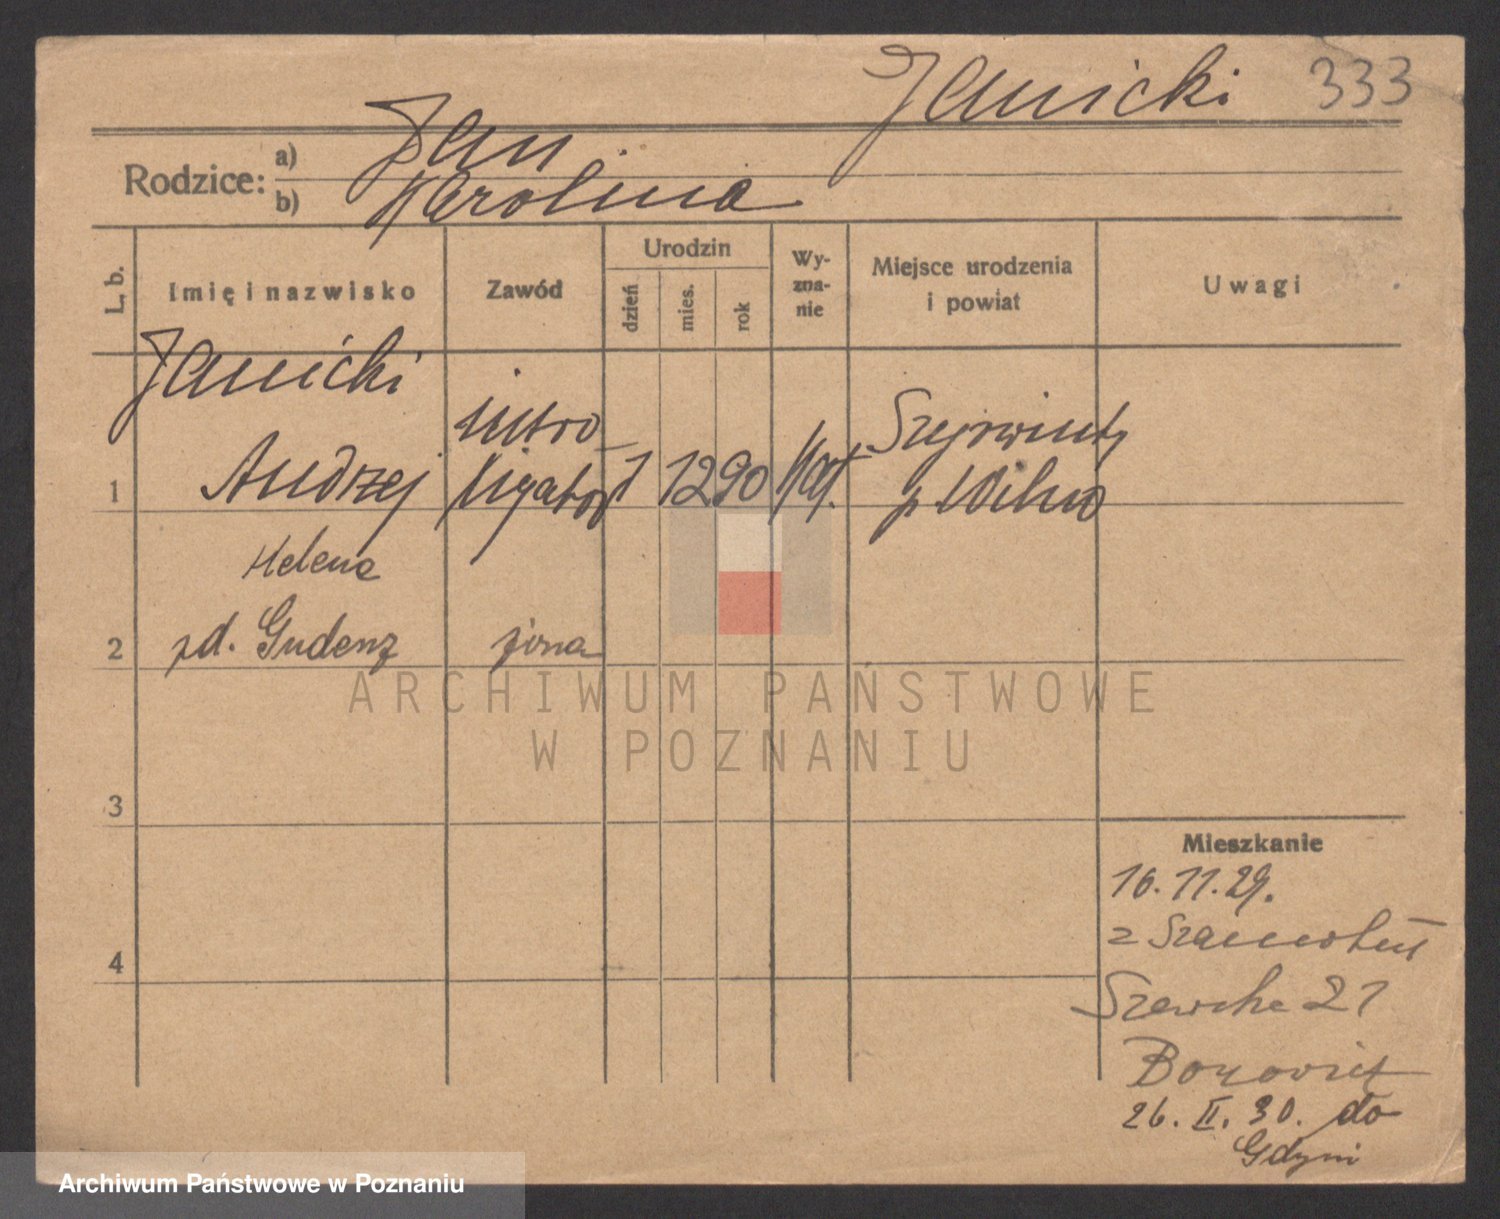 Janicki 333
Rodzice: a) Jan
b) Karolina
L. b. Imię i nazwisko Zawód Urodzin Wy-zna-nie Miejsce urodzenia i powiat Uwagi
dzień mies. rok
Janicki
1 Andrzej intro ligator 1 12 90 kat. Szyrwinty p Wilno
Helena
2 zd. Gudenz żona
3
4
Mieszkanie
16.11.29.
z Szamotuł
Szewska 21
26. II. 30. do
Gdyni
ARCHIWUM PAŃSTWOWE
W POZNANIU
Archiwum Państwowe w Poznaniu